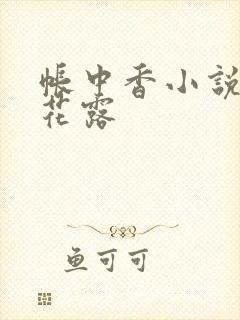 帳中香小說
花露
鱼可可